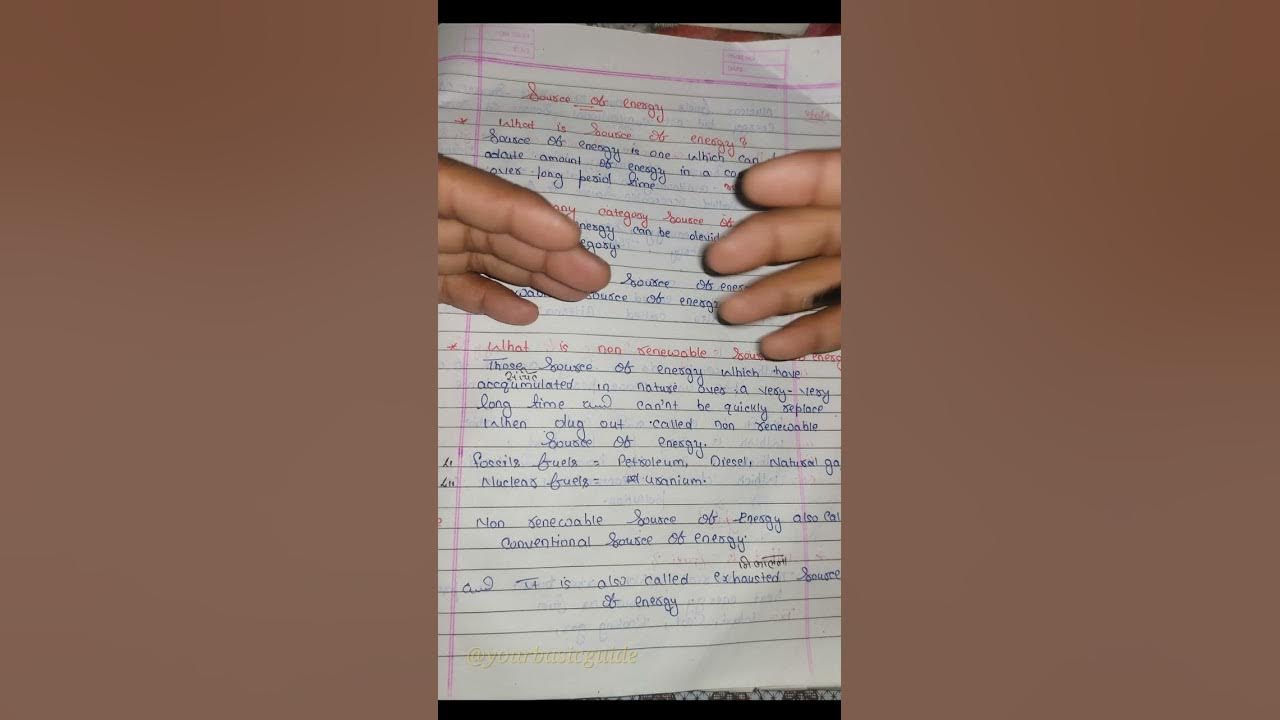 Source of energy
* What is Source of energy?
Source of energy is one which can
adate amount of energy in a co
over long period time
any category Source of
energy can be devid
egory.
Source of ener
source of energy
* What is non renewable Sou energy
Those Source of energy which have
संचित
accqumulated in nature over a very-very
long time and can'nt be quickly replace
When dug out called non renewable
Source of energy.
Fossils fuels = Petroleum, Diesel, Natural ga
Nuclear fuels = uranium.
Non renewable Source of Energy also Cal
Conventional Source of energy.
and It is also called exhausted Source
of energy.
@yourbasicguide